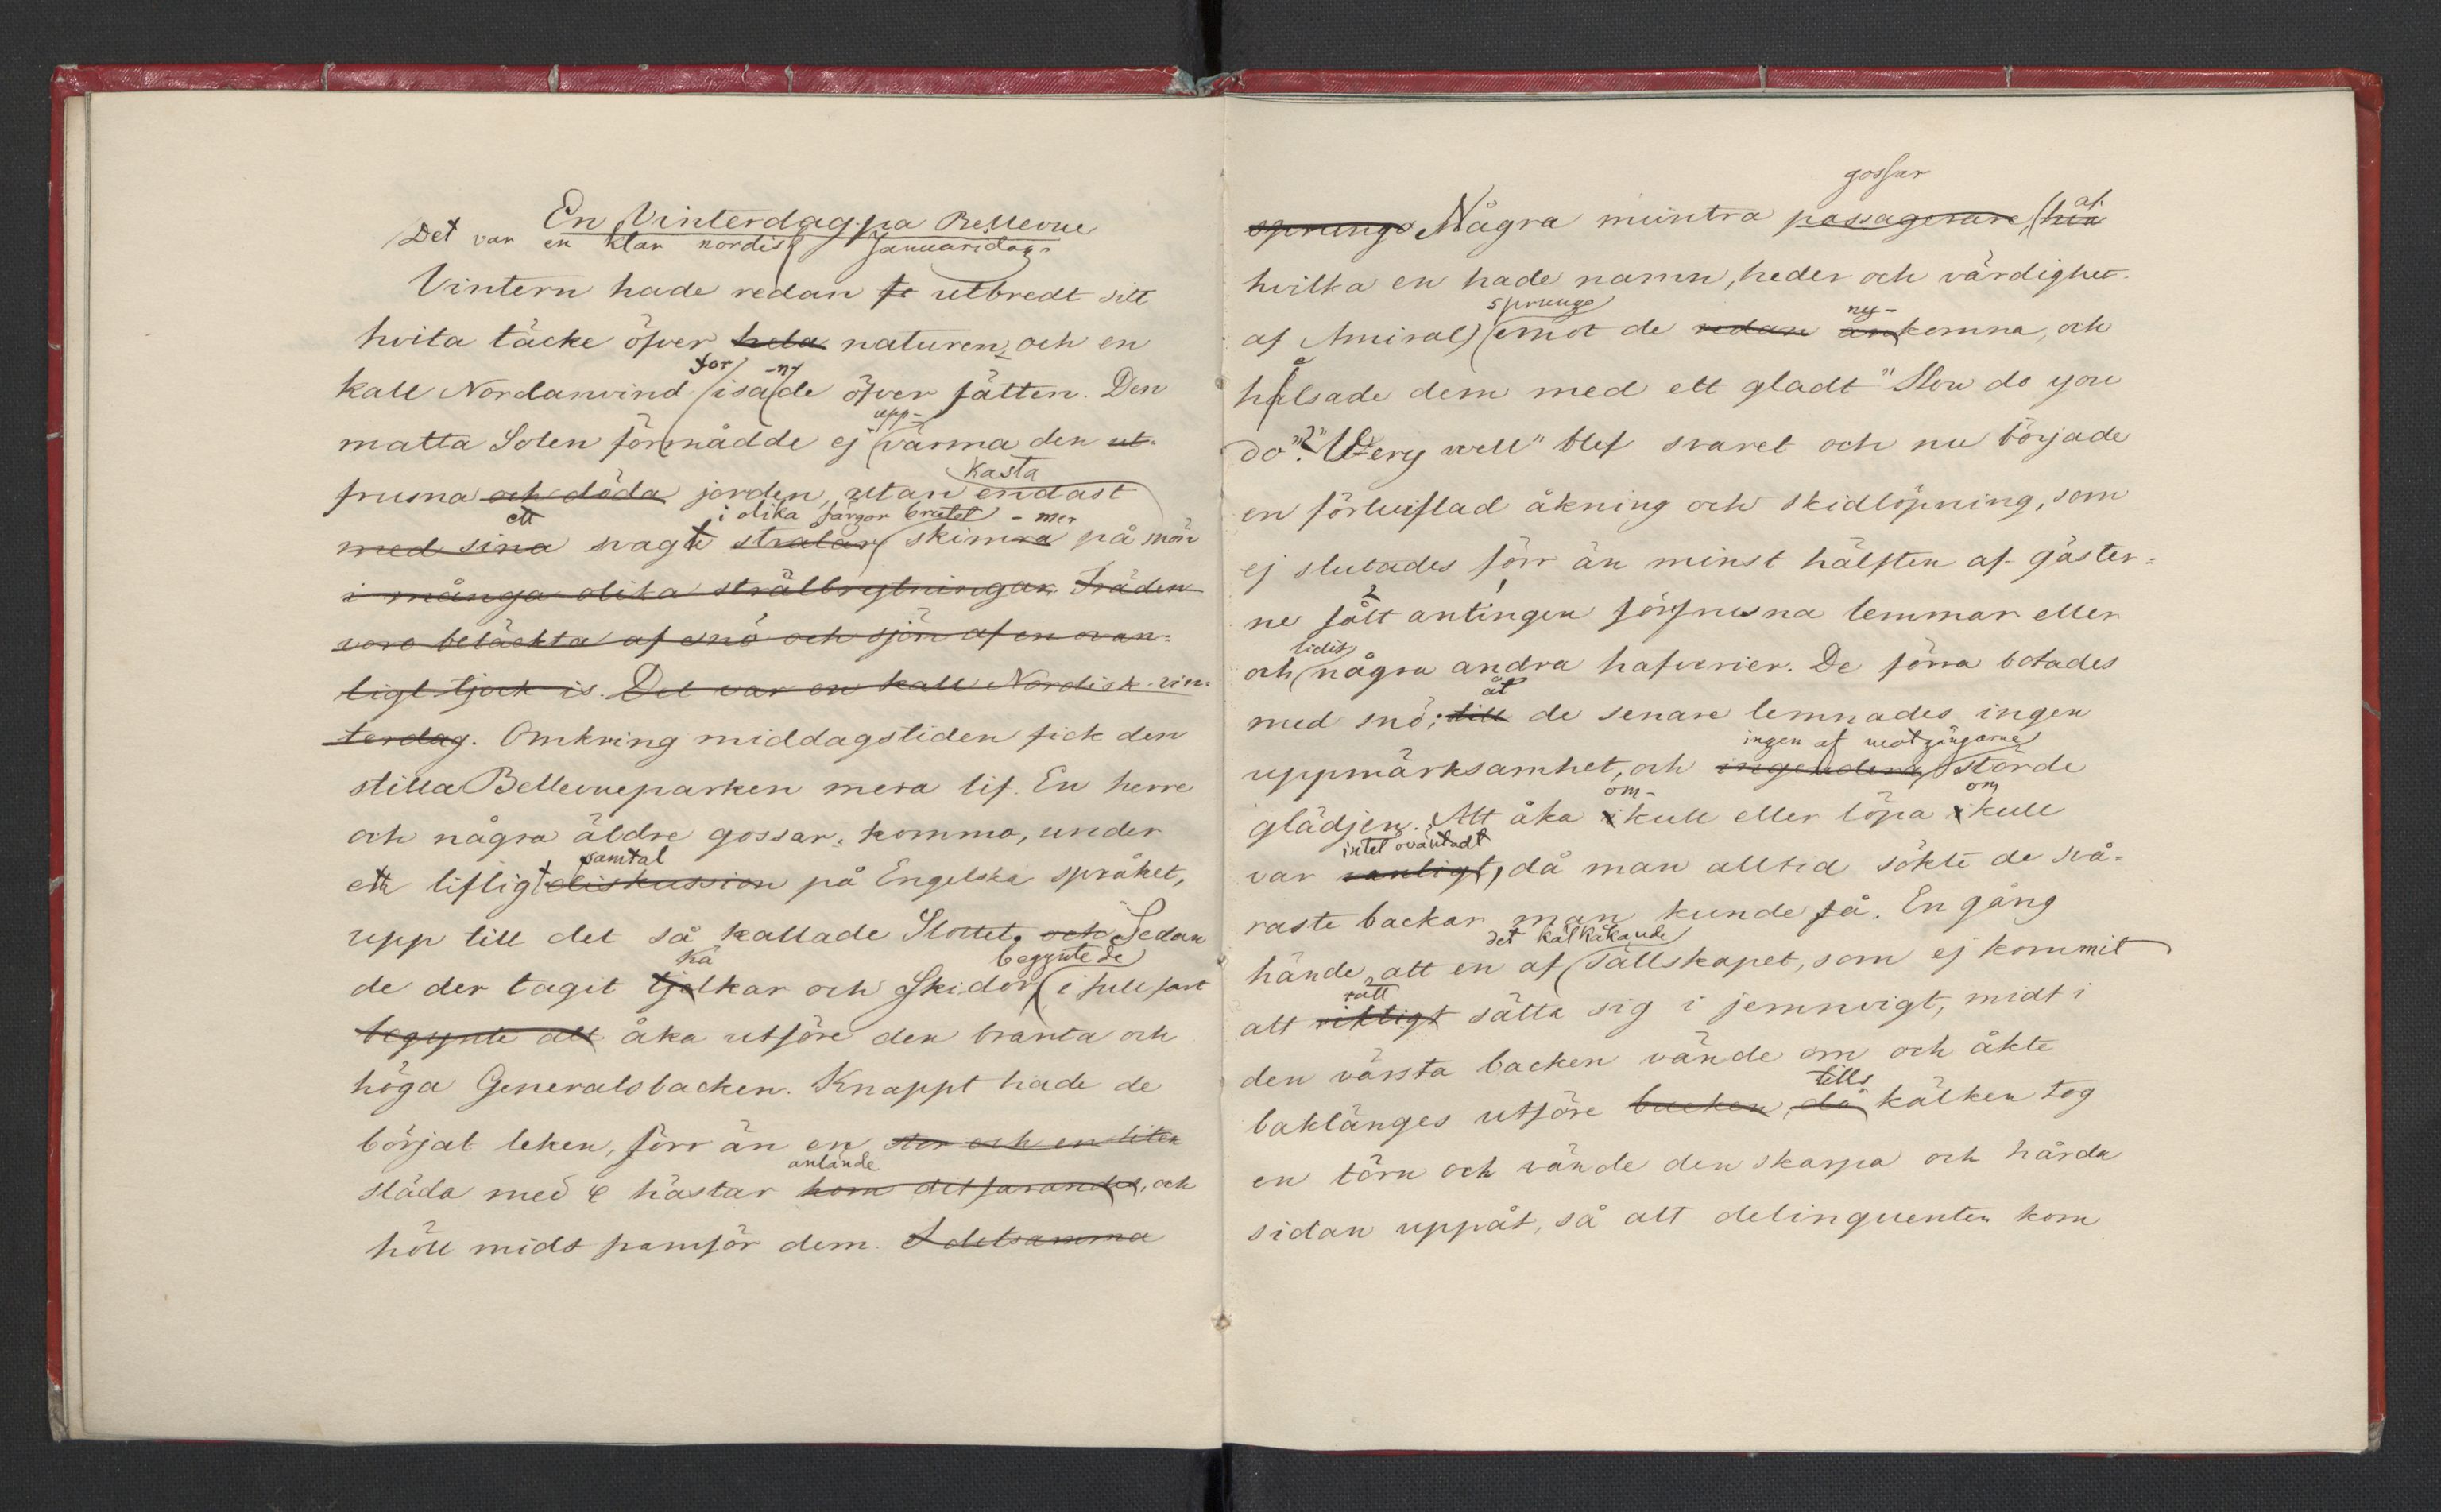 En Vinterdag på Bellevue
Det var en klar nordisk Januaridag.
Vintern hade redan fr utbredt sitt
hvita täcke öfver hela naturen, och en
for -n-
kall Nordanvind isade öfver fälten. Den
upp-
matta Solen förmådde ej värma den ut-
kasta
frusna och döda jorden, utan endast
ett i olika färgor brutet - mer
med sina svagt strålar skimra på snön
i många olika strålbrytningar. Träden
voro betäckta af snö och sjön af en ovan=
ligt tjock is. Det var en kall Nordisk vin=
terdag. Omkring middagstiden fick den
stilla Bellevueparken mera lif. En herre
och några äldre gossar, kommo, under
samtal
ett lifligt diskussion på Engelska språket,
upp till det så kallade Slottet. och Sedan
kä begynte de
de der tagit tjelkar och Skidor, i full fart
begynte att åka utföre den branta och
höga Generalsbacken. Knappt hade de
börjat leken, förr än en stor och en liten
anlände
släda med 4 hästar kom ditfarandes, och
höll midt framför dem. I detsamma
gossar
sprungo Några muntra passagerare, af
hvilka en hade namn, heder och värdighet
sprungo ny-
af Amiral, emot de redan ankomna, och
helsade dem med ett gladt "How do you
do"? "Very well" blef svaret och nu började
en förtviflad åkning och skidlöpning, som
ej slutades förr än minst hälften af gäster=
ne fått antingen förfrusna lemmar eller
lidit
och några andra hafverier. De förra botades
åt
med snö; till de senare lemnades ingen
ingen af motgångarne
uppmärksamhet, och ingendera störde
om- om
glädjen. Att åka ikull eller löpa ikull
intet oväntadt
var vanligt, då man alltid sökte de svå=
raste backar man kunde få. En gång
det kälkåkande
hände, att en af sällskapet, som ej kommit
rätt
att riktigt sätta sig i jemnvigt, midt i
den värsta backen vände om och åkte
tills
baklänges utföre backen, då kälken tog
en törn och vände den skarpa och hårda
sidan uppåt, så att delinquenten kom